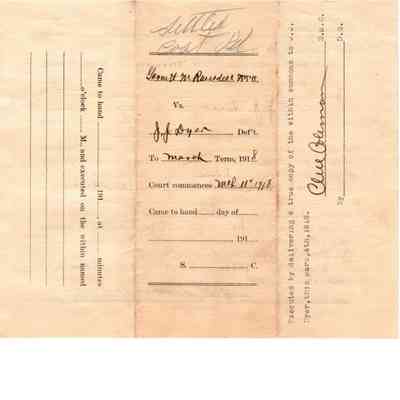 Settled
Cost Pd.
Vs.
J. J. Dyer Def't.
To March Term, 1918
Court commences Mch 11" 1918
Came to hand day of
, 191
S. C.
Came to hand 191 , at minutes
o'clock M., and executed on the within named
Executed by delivering a true copy of the within summons to J.J.
Dyer, this march,4th,1918.
Clint Coleman
S.S.C.
by D.S.